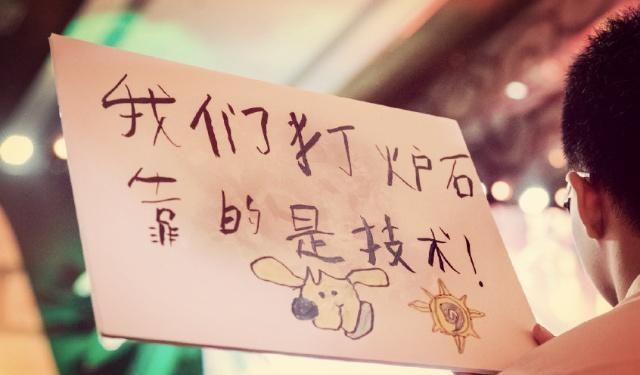 我们打炉石
靠的是技术!